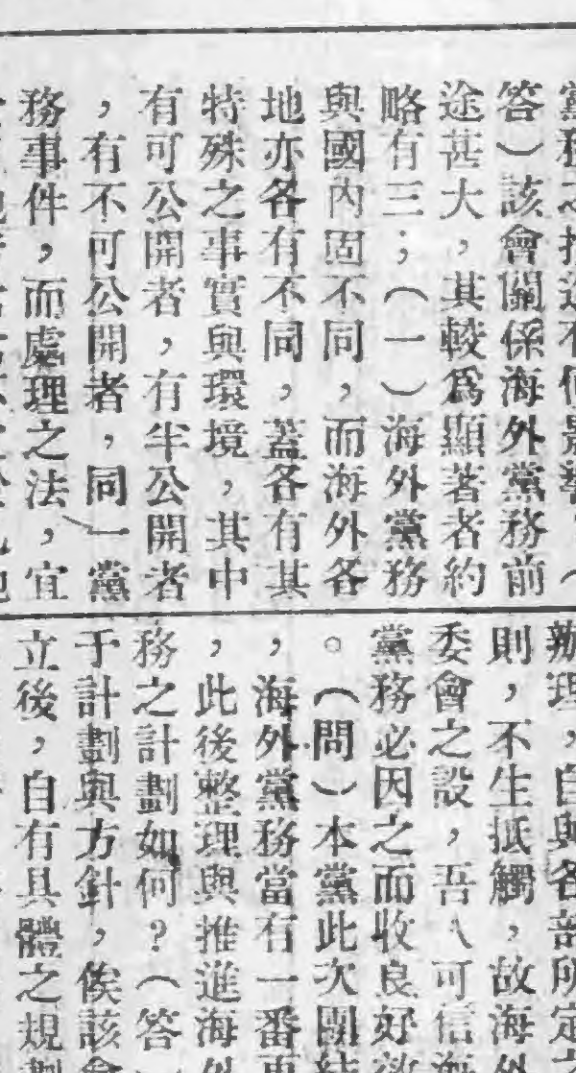 黨務之推進不信影響。（
答）該會關係海外黨務前
途甚大，其較爲顯著者約
略有三；（一）海外黨務
與國內固不同，而海外各
地亦各有不同，蓋各有其
特殊之事實與環境，其中
有可公開者，有半公開者
，有不可公開者，同一黨
務事件，而處理之法，宜
辦理，自與各部所定
則，不生抵觸，故海外
委會之設，吾人可信海
黨務必因之而收良好效
。（問）本黨此次團結
，海外黨務當有一番
，此後整理與推進海外
務之計劃如何？（答）
于計劃與方針，俟該會
立後，自有具體之規劃